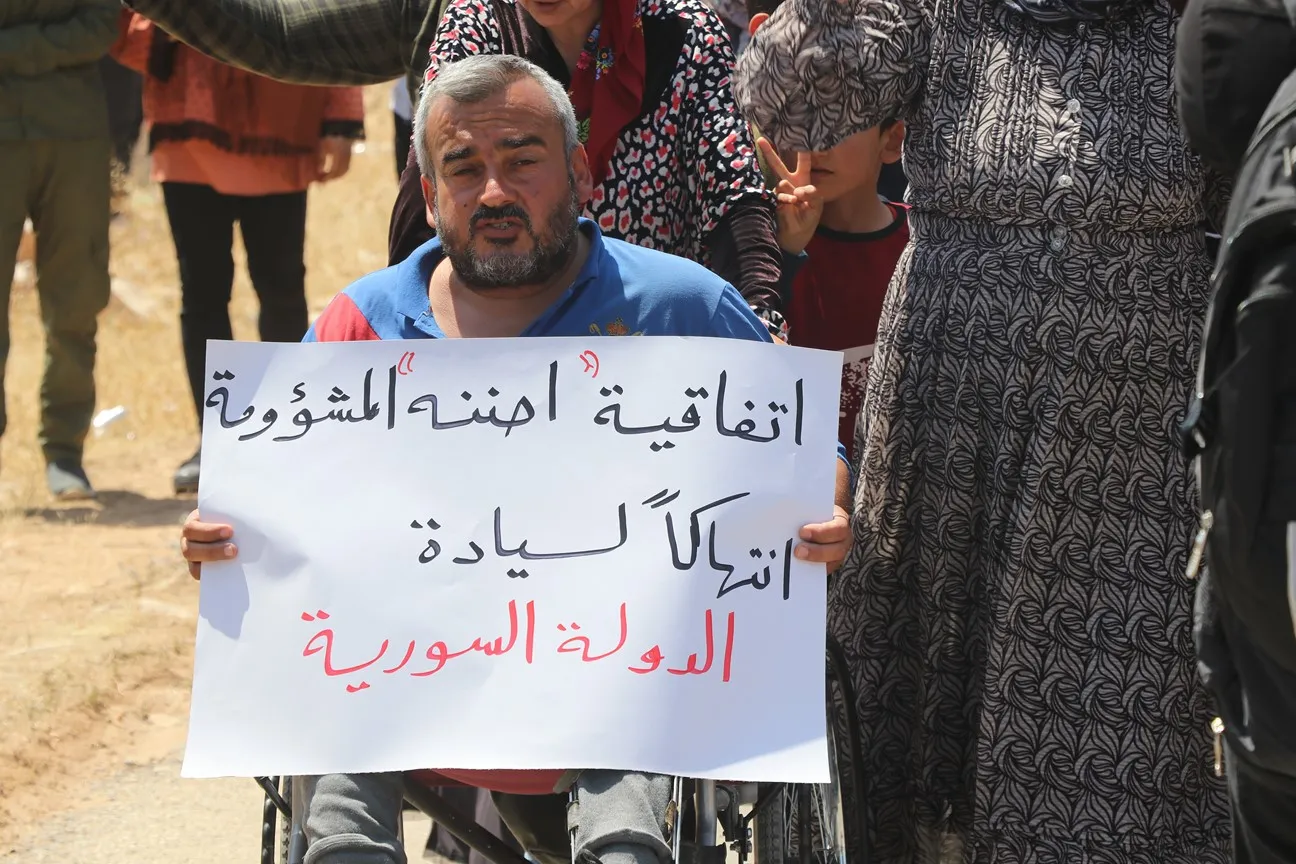 اتفاقية "اضنه" المشؤومة
انتهاكاً لسيادة
الدولة السورية